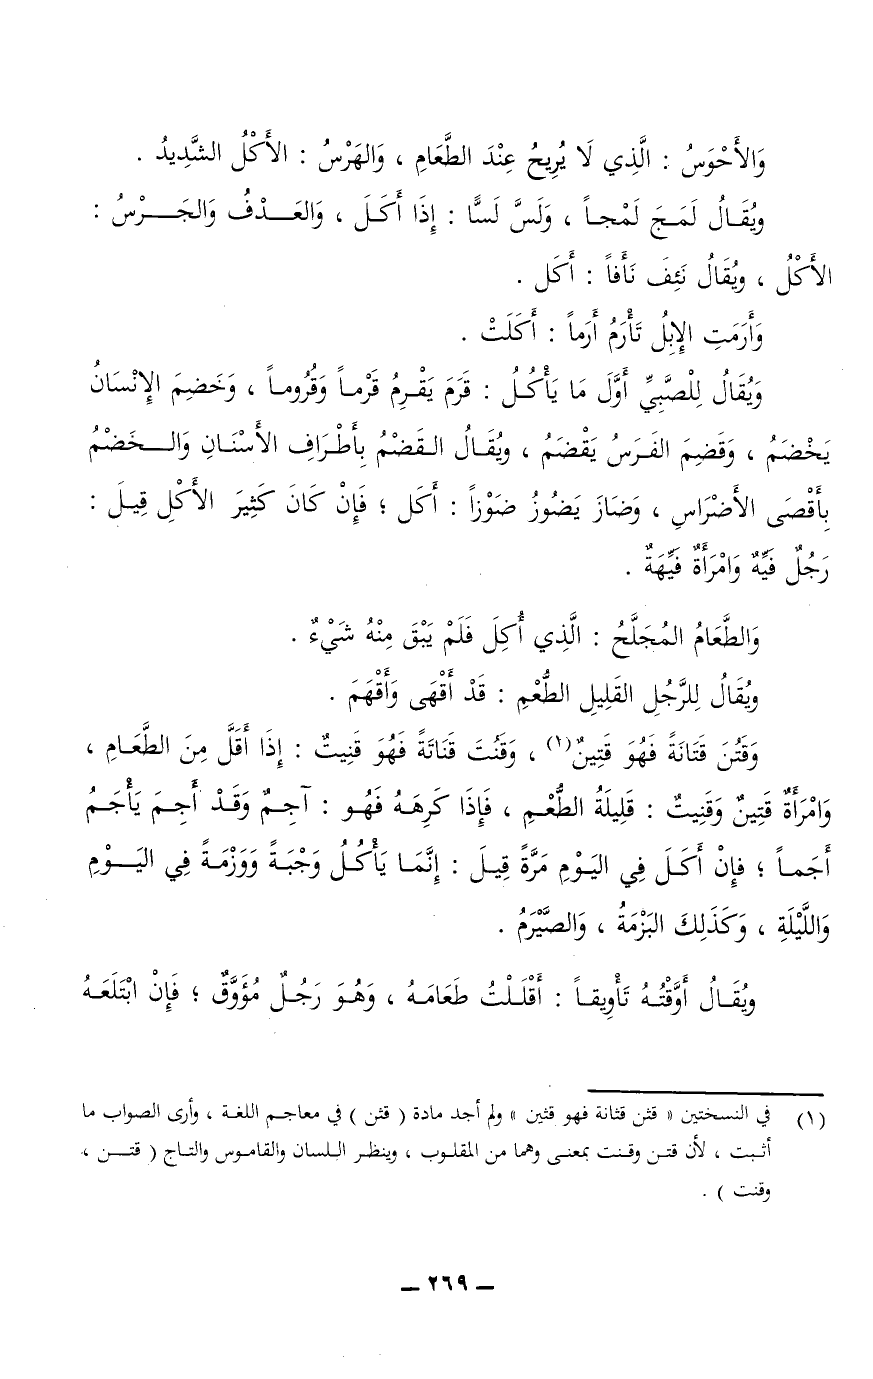 وَالأَحْوَسُ : الَّذِي لَا يُرِيحُ عِنْدَ الطَّعَامِ ، وَالهَرْسُ : الأَكْلُ الشَّدِيدُ .
ويُقَالُ لَمَجَ لَمْجاً ، وَلَسَّ لَسًّا : إِذَا أَكَلَ ، وَالعَذْفُ وَالجَرْسُ :
الأَكْلُ ، ويُقَالُ نَئِفَ نَأَفاً : أَكَل .
وَأَرَمَتِ الإِبِلُ تَأْرَمُ أَرَماً : أَكَلَتْ .
وَيُقَالُ لِلْصَّبِيِّ أَوَّلَ مَا يَأْكُلُ : قَرَمَ يَقْرِمُ قَرْماً وَقُرُوماً ، وَخَضِمَ الإِنْسَانُ
يَخْضَمُ ، وَقَضِمَ الفَرَسُ يَقْضَمُ ، ويُقَالُ القَضْمُ بِأَطْرَافِ الأَسْنَانِ وَالخَضْمُ
بِأَقْصَى الأَضْرَاسِ ، وَضَازَ يَضُوزُ ضَوْزاً : أَكَل ؛ فَإِنْ كَانَ كَثِيرَ الأَكْلِ قِيلَ :
رَجُلٌ فَيِّهٌ وَامْرَأَةٌ فَيِّهَةٌ .
وَالطَّعَامُ المُجَلَّحُ : الَّذِي أُكِلَ فَلَمْ يَبْقَ مِنْهُ شَيْءٌ .
ويُقَالُ لِلرَّجُلِ القَلِيلِ الطُّعْمِ : قَدْ أَقْهَى وَأَقْهَمَ .
وَقَتُنَ قَتَانَةً فَهُوَ قَتِينٌ (١) ، وَقَنُتَ قَنَاتَةً فَهُوَ قَنِيتٌ : إِذَا أَقَلَّ مِنَ الطَّعَامِ ،
وَامْرَأَةٌ قَتِينٌ وَقَنِيتٌ : قَلِيلَةُ الطُّعْمِ ، فَإِذَا كَرِهَهُ فَهُو : آجِمٌ وَقَدْ أَجِمَ يَأْجَمُ
أَجَماً ؛ فإِنْ أَكَلَ فِي اليَوْمِ مَرَّةً قِيلَ : إِنَّمَا يَأْكُلُ وَجْبَةً وَوَزْمَةً فِي اليَوْمِ
وَاللَّيْلَةِ ، وَكَذَلِكَ البَزْمَةُ ، وَالصَّيْرَمُ .
ويُقَالُ أَوَّقْتُهُ تَأْوِيقاً : أَقْلَلْتُ طَعَامَهُ ، وَهُوَ رَجُلٌ مُؤَوَّقٌ ؛ فَإِنْ ابْتَلَعَهُ
(١) في النسختين « قثن قثانة فهو قثين » ولم أجد مادة ( قثن ) في معاجم اللغة ، وأرى الصواب ما
أثبت ، لأن قتن وقنت بمعنى وهما من المقلوب ، وينظر اللسان والقاموس والتاج ( قتن ،
وقنت ) .
– ٢٦٩ –